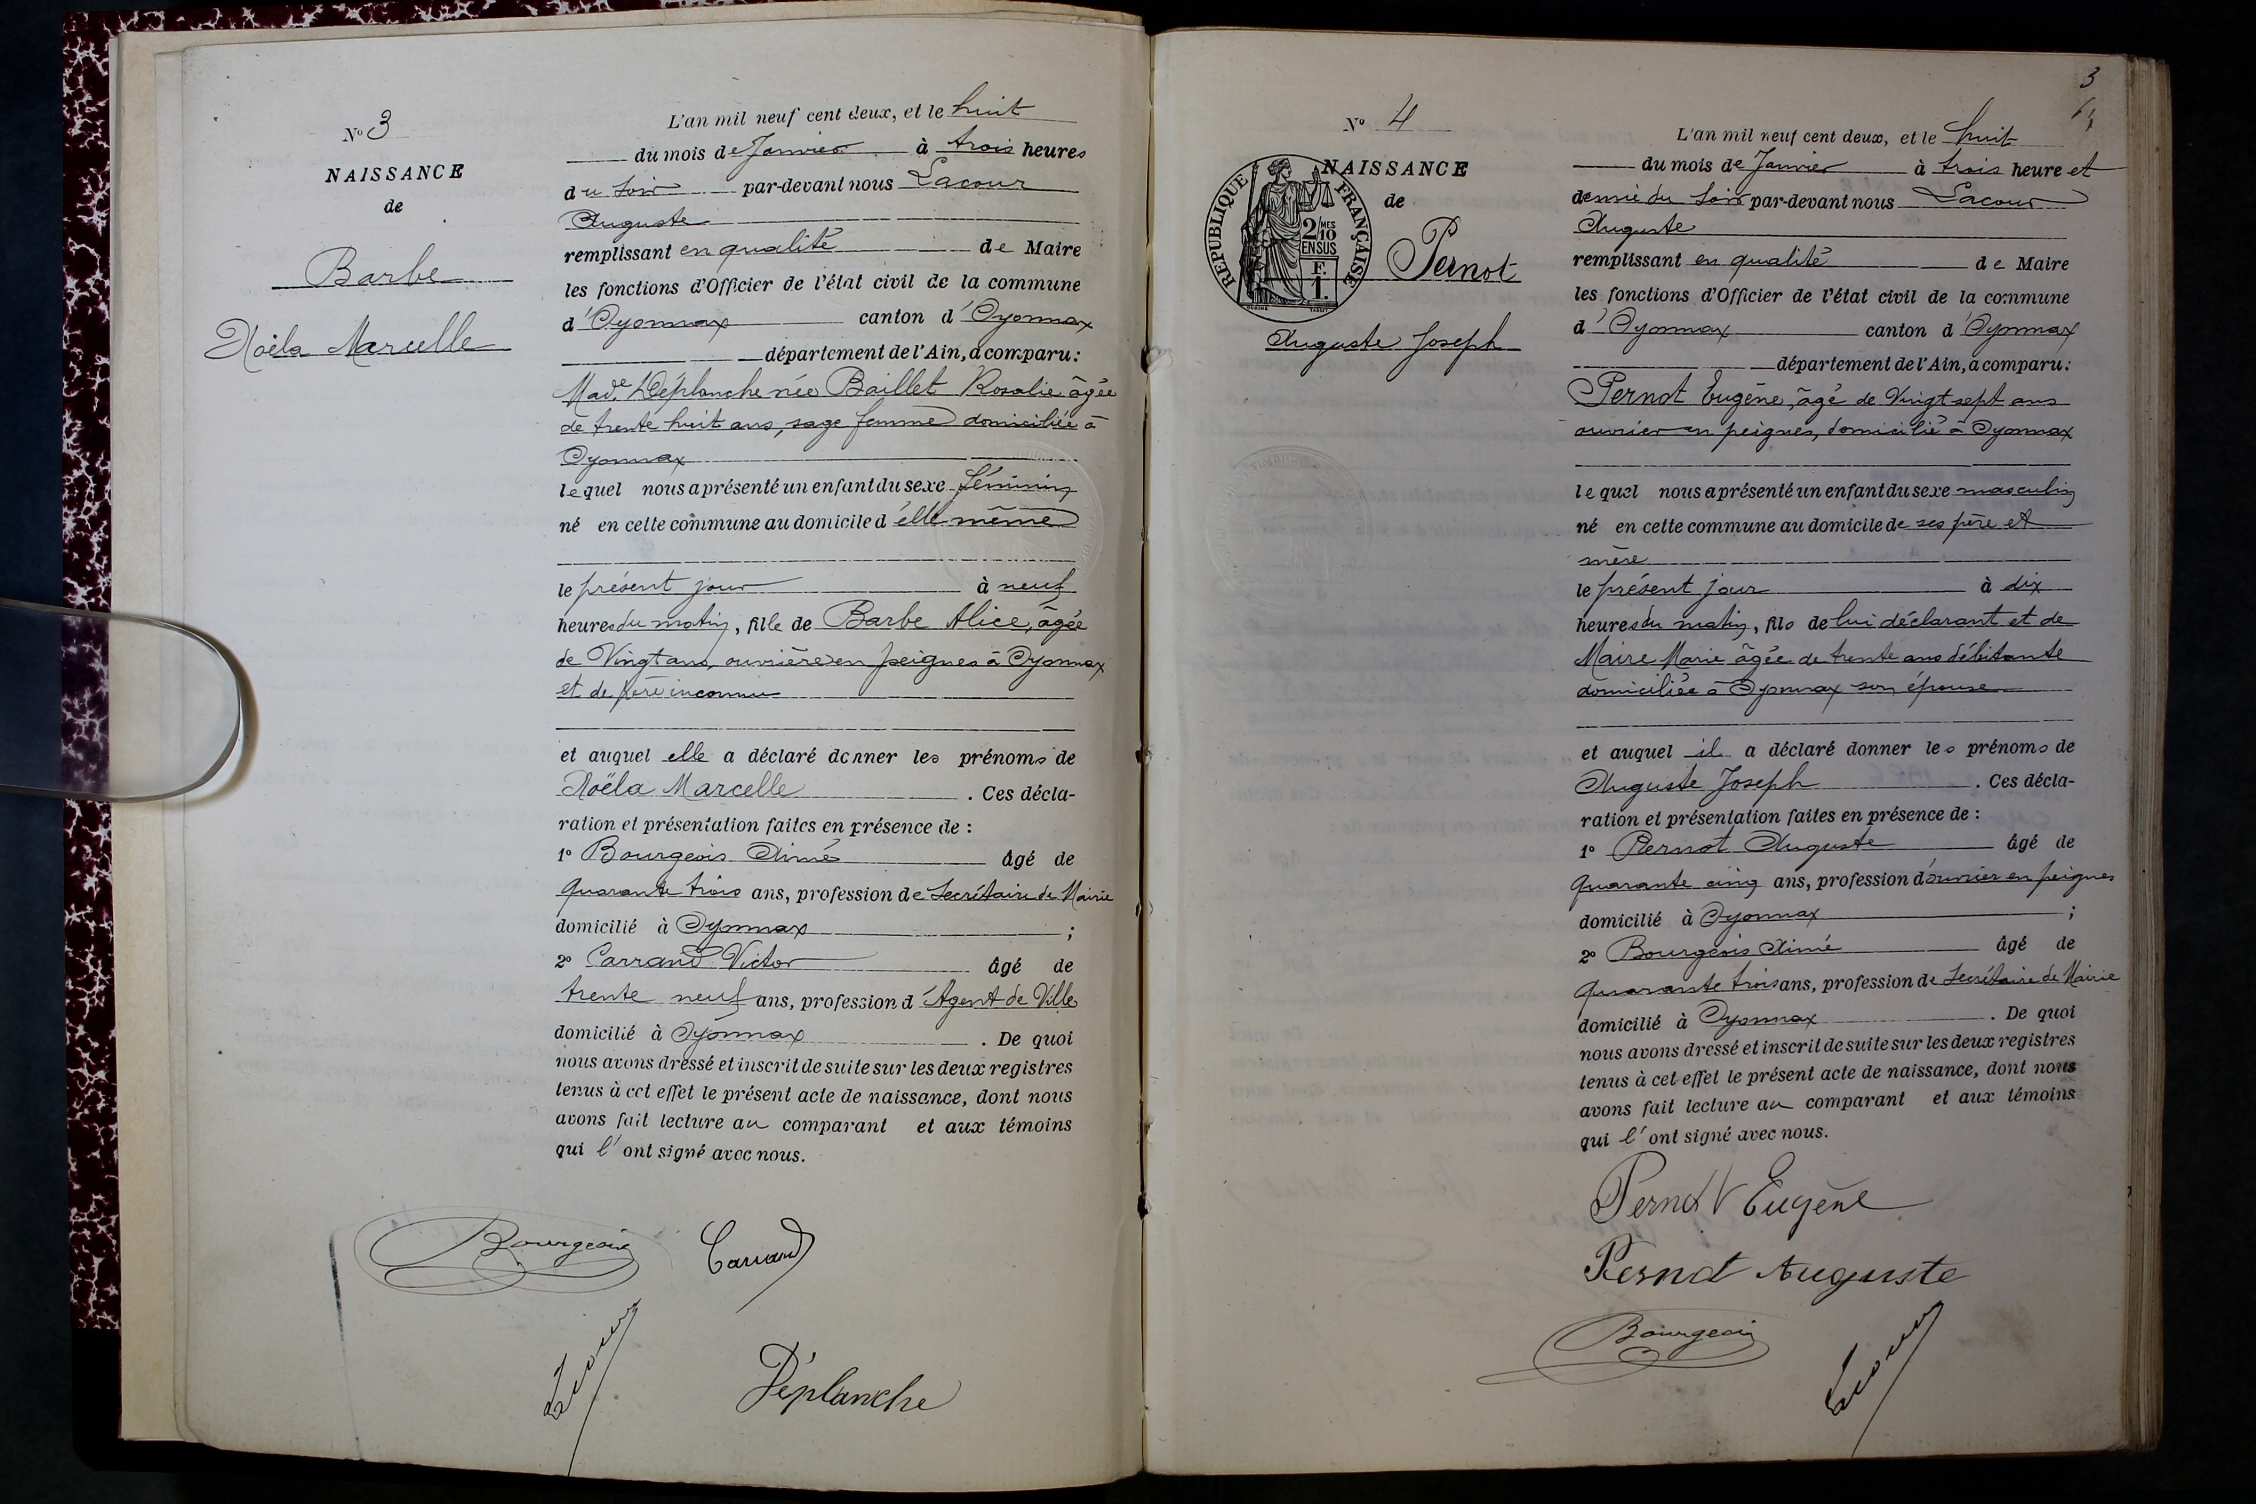 N° 3
NAISSANCE
de
Barbe
Noëla Marcelle
L'an mil neuf cent deux, et le huit
du mois de Janvier à trois heures
du soir par-devant nous Lacour
Auguste
remplissant en qualité de Maire
les fonctions d'Officier de l'état civil de la commune
d'Oyonnax canton d'Oyonnax
département de l'Ain, a comparu:
Made Déplanche née Baillet Rosalie âgée
de trente huit ans, sage femme domiciliée à
Oyonnax
lequel nous a présenté un enfant du sexe féminin
né en cette commune au domicile d'elle même
le présent jour à neuf
heures du matin, fille de Barbe Alice, âgée
de Vingt ans, ouvrière en peignes à Oyonnax
et de père inconnu
et auquel elle a déclaré donner les prénoms de
Noëla Marcelle. Ces décla-
ration et présentation faites en présence de :
1° Bourgeois Aimé âgé de
quarante trois ans, profession de Secrétaire de Mairie
domicilié à Oyonnax ;
2° Carrand Victor âgé de
trente neuf ans, profession d'Agent de Ville
domicilié à Oyonnax. De quoi
nous avons dressé et inscrit de suite sur les deux registres
tenus à cet effet le présent acte de naissance, dont nous
avons fait lecture au comparant et aux témoins
qui l'ont signé avec nous.
Bourgeois Carrand
Lacour
Déplanche
3
N° 4
NAISSANCE
de
Pernot
Auguste Joseph
REPUBLIQUE FRANÇAISE
2/10 MES
EN SUS
F.
1.
L'an mil neuf cent deux, et le huit
du mois de Janvier à trois heure et
demie du soir par-devant nous Lacour
Auguste
remplissant en qualité de Maire
les fonctions d'Officier de l'état civil de la commune
d'Oyonnax canton d'Oyonnax
département de l'Ain, a comparu:
Pernot Eugène, âgé de Vingt sept ans
ouvrier en peignes, domicilié à Oyonnax
lequel nous a présenté un enfant du sexe masculin
né en cette commune au domicile de ses père et
mère
le présent jour à dix
heures du matin, fils de lui déclarant et de
Maire Marie âgée de trente ans débitante
domiciliée à Oyonnax son épouse
et auquel il a déclaré donner les prénoms de
Auguste Joseph. Ces décla-
ration et présentation faites en présence de :
1° Pernot Auguste âgé de
quarante cinq ans, profession d'ouvrier en peignes
domicilié à Oyonnax ;
2° Bourgeois Aimé âgé de
quarante trois ans, profession de Secrétaire de Mairie
domicilié à Oyonnax. De quoi
nous avons dressé et inscrit de suite sur les deux registres
tenus à cet effet le présent acte de naissance, dont nous
avons fait lecture au comparant et aux témoins
qui l'ont signé avec nous.
Pernot Eugène
Pernot Auguste
Bourgeois
Lacour